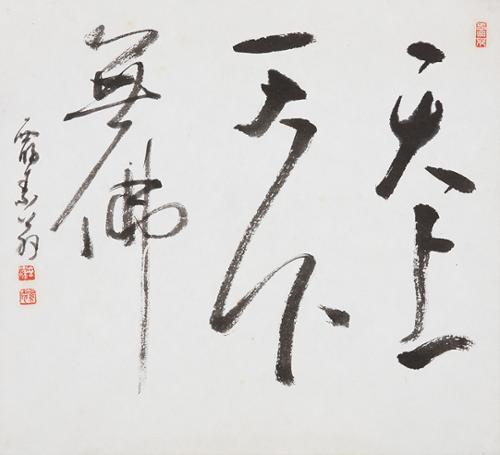 天上
天下
無佛
翁